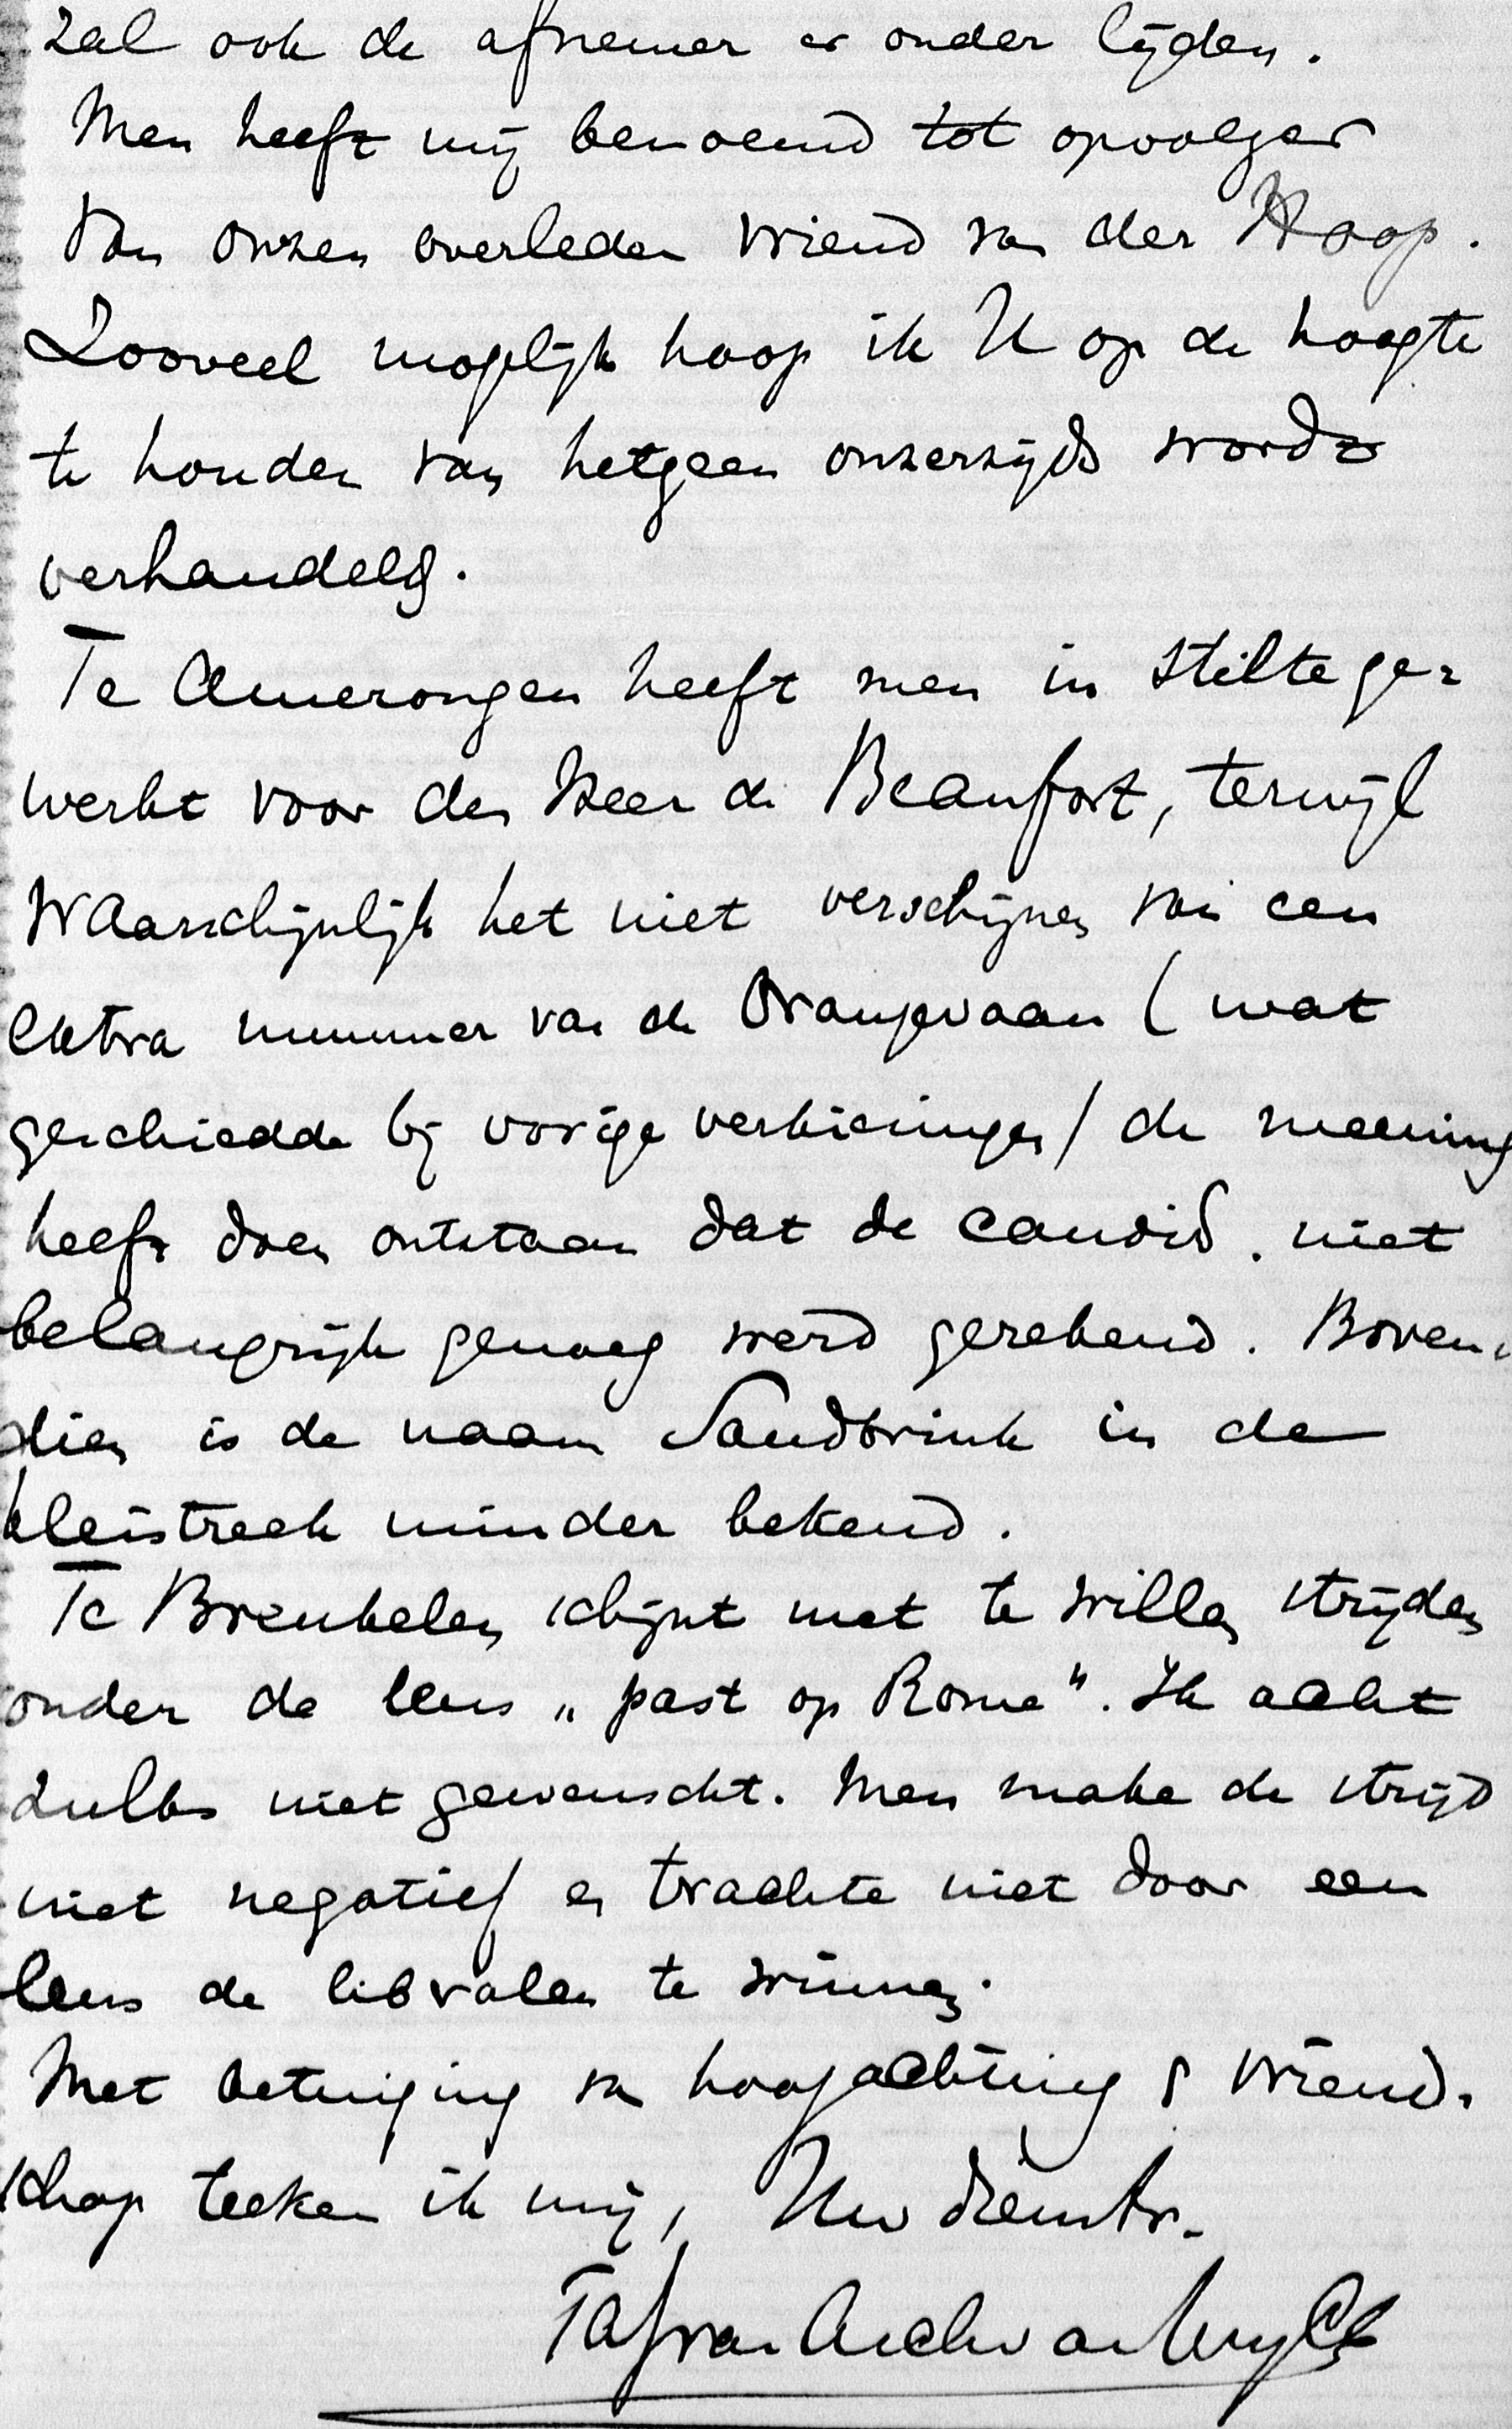 zal ook de afnemer er onder lijden.
Men heeft mij benoemd tot opvolger
van onzen overleden vriend van der Hoop.
Zooveel mogelijk hoop ik U op de hoogte
te houden van hetgeen onzerzijds wordt
verhandeld.
Te Amerongen heeft men in stilte ge-
werkt voor den Heer de Beaufort, terwijl
waarschijnlijk het niet verschijnen van een
extra nummer van de Oranjevaan (wat
geschiedde bij vorige verkiezingen) de meening
heeft doen ontstaan dat de candid. niet
belangrijk genoeg werd gerekend. Boven-
dien is de naam Sandbrink in de
kleistreek minder bekend.
Te Breukelen schijnt met te willen strijden
onder de leus „past op Rome". Ik acht
zulks niet gewenscht. Men make de strijd
niet negatief en trachte niet door een
leus de liberalen te winnen.
Met betuiging van hoogachting & vriend-
schap teeken ik mij, Uw dienstv.